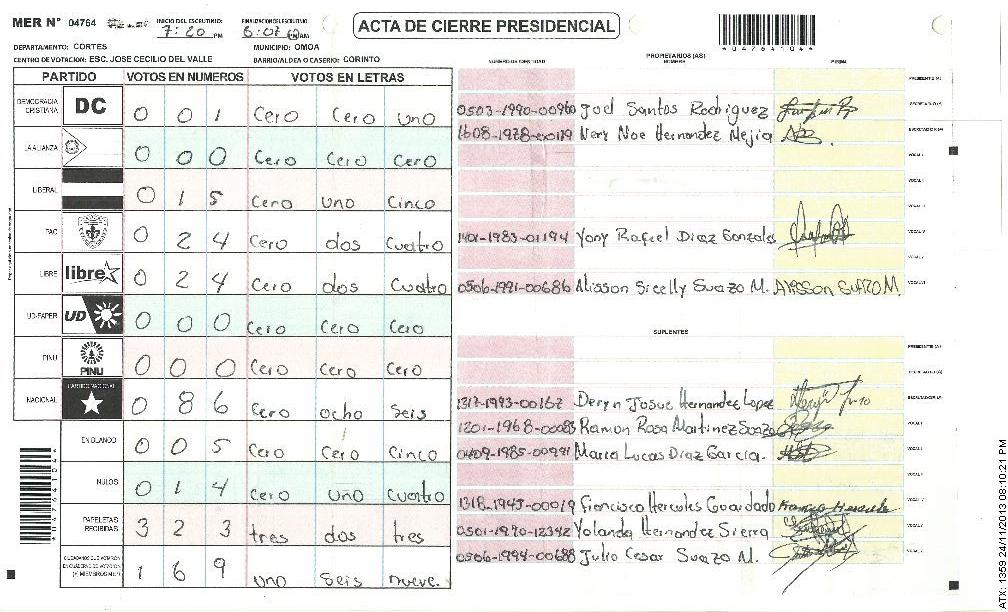 MER N° 04764 INICIO DEL ESCRUTINIO: 7:20 PM FINALIZACION ESCRUTINIO 6:07 PM/AM
ACTA DE CIERRE PRESIDENCIAL
*04764104*
DEPARTAMENTO: CORTES MUNICIPIO: OMOA
CENTRO DE VOTACION: ESC. JOSE CECILIO DEL VALLE BARRIO/ALDEA O CASERIO: CORINTO
PARTIDO VOTOS EN NUMEROS VOTOS EN LETRAS
DEMOCRACIA CRISTIANA DC 0 0 1 Cero Cero uno
LA ALIANZA 0 0 0 Cero Cero Cero
LIBERAL 0 1 5 Cero uno Cinco
PAC 0 2 4 Cero dos Cuatro
LIBRE libre 0 2 4 Cero dos Cuatro
UD-FAPER UD 0 0 0 Cero Cero Cero
PINU PINU 0 0 0 Cero Cero Cero
NACIONAL PARTIDO NACIONAL 0 8 6 Cero ocho seis
EN BLANCO 0 0 5 Cero Cero Cinco
NULOS 0 1 4 Cero uno Cuatro
PAPELETAS RECIBIDAS 3 2 3 tres dos tres
CIUDADANOS QUE VOTARON EN CUADERNO DE VOTACION (Y MIEMBROS MER) 1 6 9 uno seis nueve.
*04764104*
PROPIETARIOS (AS)
NUMERO DE IDENTIDAD NOMBRE FIRMA
PRESIDENTE (A)
0503-1990-00960 Joel Santos Rodriguez SECRETARIO (A)
1608-1978-00119 Nery Noe Hernandez Mejia ESCRUTADOR (A)
VOCAL I
VOCAL II
VOCAL III
1401-1983-01194 Yony Rafael Diaz Gonzales VOCAL IV
VOCAL V
0506-1991-00686 Alisson Sicelly Suazo M. Alisson Suazo M. VOCAL VI
SUPLENTES
PRESIDENTE (A)
SECRETARIO (A)
1317-1993-00167 Deryn Josue Hernandez Lopez ESCRUTADOR (A)
1201-1968-00083 Ramon Rosa Martinez Suazo VOCAL I
0409-1985-00991 Maria Lucas Diaz Garcia. VOCAL II
1318-1945-00019 Francisco Hercules Guardado VOCAL IV
0501-1970-12342 Yolanda Hernandez Sierra VOCAL V
0506-1994-00688 Julio Cesar Suazo M.
ATX: 1359 24/11/2013 08:10:21 PM